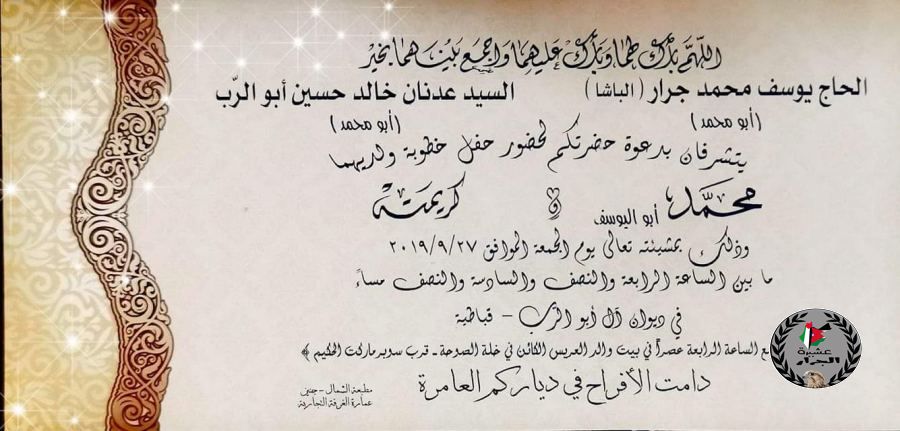 اللهم بارك لهما وبارك عليهما واجمع بينهما بخير
الحاج يوسف محمد جرار (الباشا) السيد عدنان خالد حسين أبو الرّب
(أبو محمد) (أبو محمد)
يتشرفان بدعوة حضرتكم لحضور حفل خطوبة ولديهما
محمد أبو اليوسف و كريمته
وذلك بمشيئته تعالى يوم الجمعة الموافق ٢٠١٩/٩/٢٧
ما بين الساعة الرابعة والنصف والسادسة والنصف مساءً
في ديوان آل أبو الرّب - قباطية
الساعة الرابعة عصراً في بيت والد العريس الكائن في خلة الصوحة - قرب سوبرماركت الحكيم ﴾
دامت الأفراح في دياركم العامرة
مطبعة الشمال - جنين
عمارة الغرفة التجارية
عشيرة
الجرار